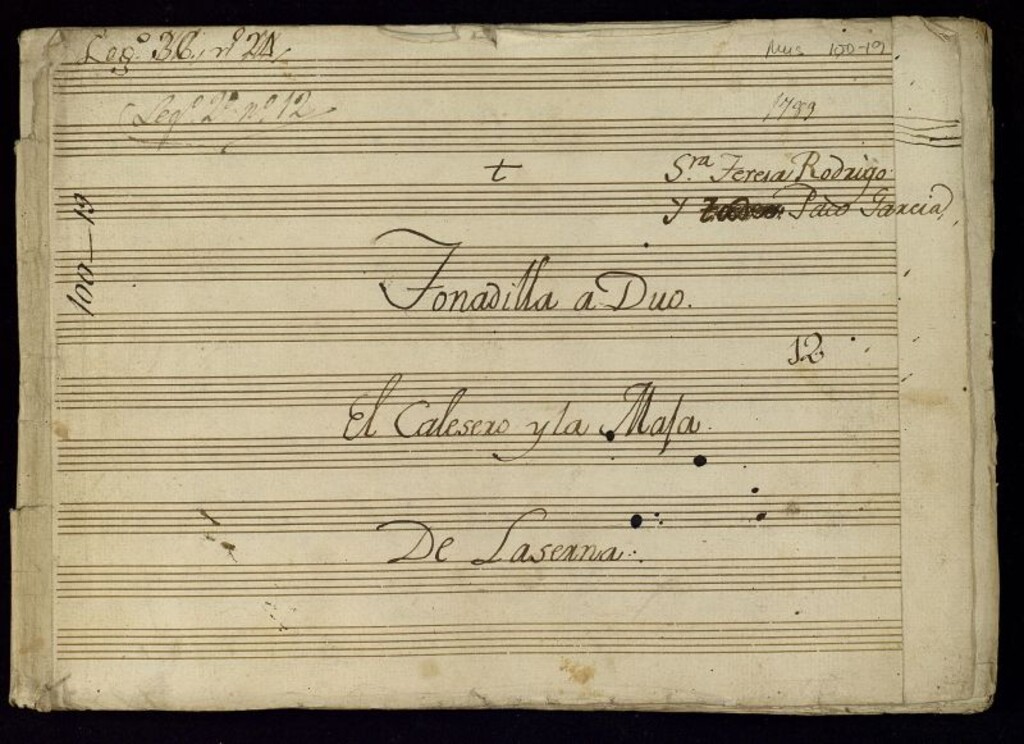 Leg.º 36, nº 24
Mus 100-19
Legº. 2º nº. 12
1789
t
S.ra Teresa Rodrigo
y Paco Garcia
100-19
Tonadilla a Duo.
12
El Calesero y la Maja.
De Laserna.